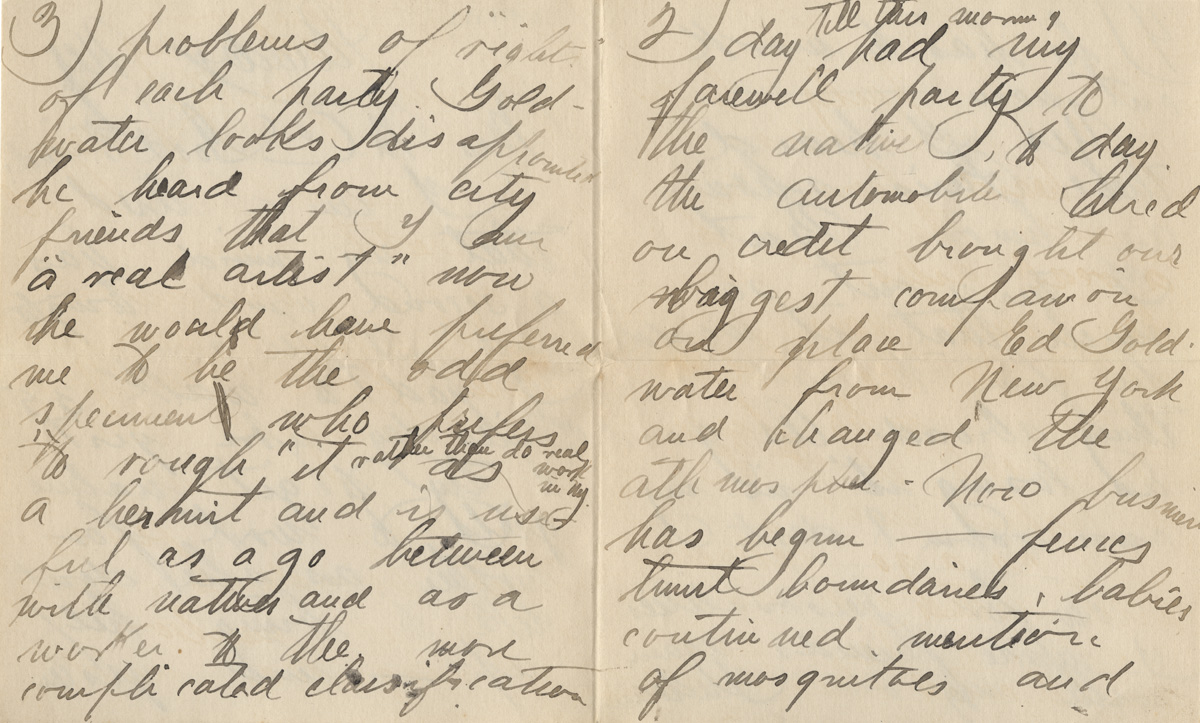 2)
till this morning
day had my
farewell party to
the native, to day
the automobile hired
on credit brought our
biggest companion
on place Ed Gold-
water from New York
and changed the
. Now business
has begun — fences
hunt boundaries, babies
continued mention
of mosquitoes and
3) problems of "right"
of each party. Gold-
water looks disappointed
he heard from city
friends that I am
"a real artist" now
he would have preferred
me to be the odd
specimen who prefers
to rough "it rather than do real
work
in N.Y.
as
a hermit and is use-
ful as a go between
with natives and as a
worker to the more
complicated classification